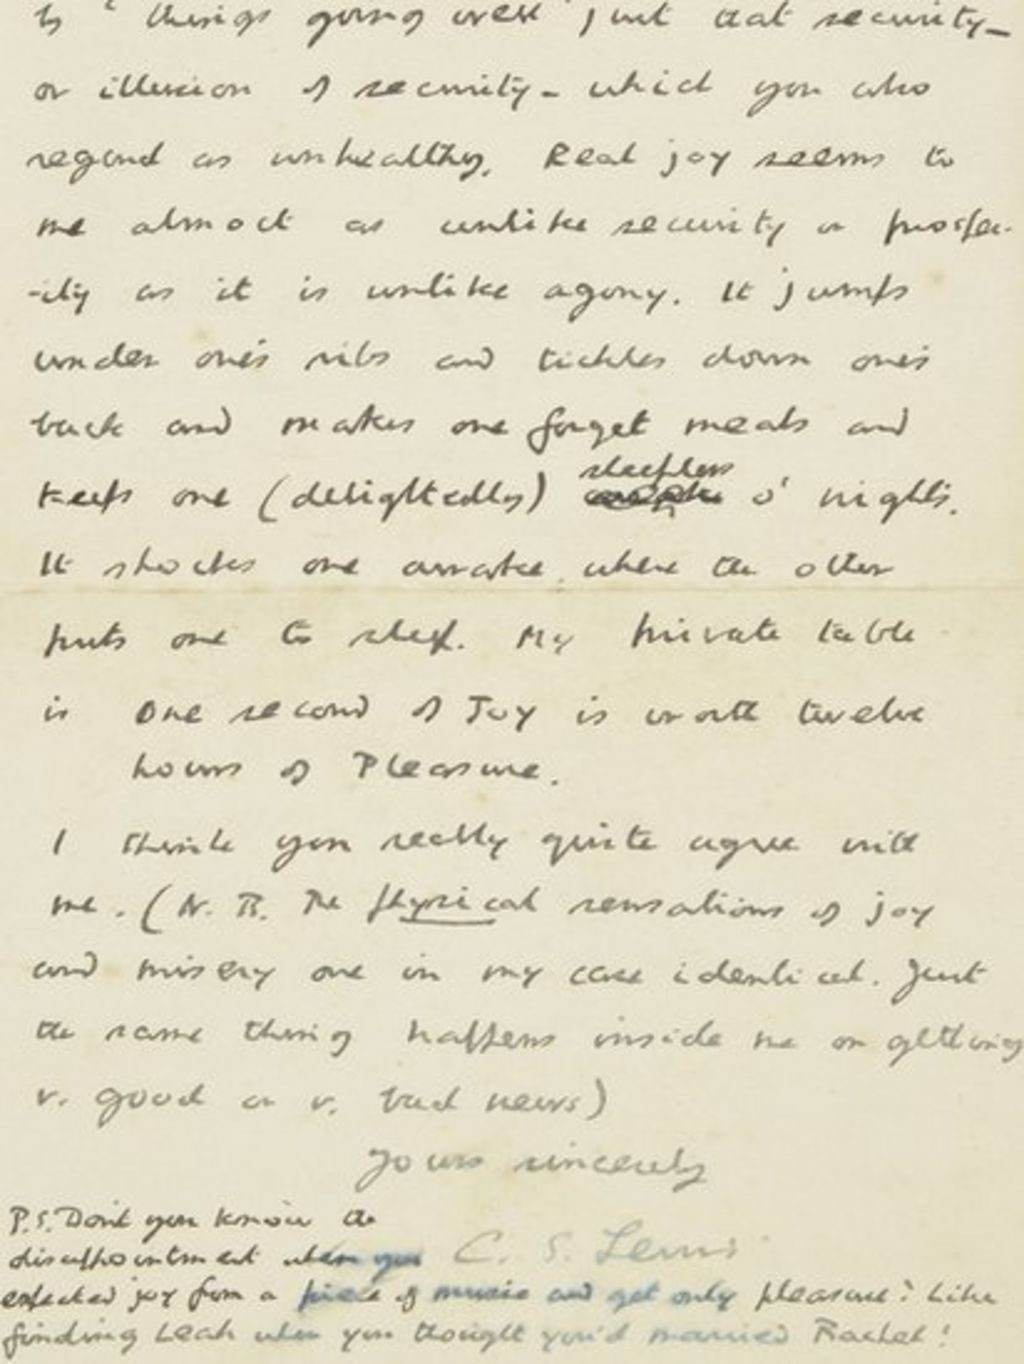 by "things going well" just that security—
or illusion of security – which you also
regard as unhealthy. Real joy seems to
me almost as unlike security or prosper-
-ity as it is unlike agony. It jumps
under one's ribs and tickles down one's
back and makes one forget meals and
keeps one (delightedly) sleepless o' nights.
It shocks one awake when the other
puts one to sleep. My private table
is One second of Joy is worth twelve
hours of Pleasure.
I think you really quite agree with
me. (N.B. The physical sensations of joy
and misery are in my case identical. Just
the same thing happens inside me on getting
v. good or v. bad news)
Yours sincerely
C. S. Lewis
P.S. Don't you know the
disappointment when you
expected joy from a piece of music and get only pleasure? Like
finding Leah when you thought you'd married Rachel!